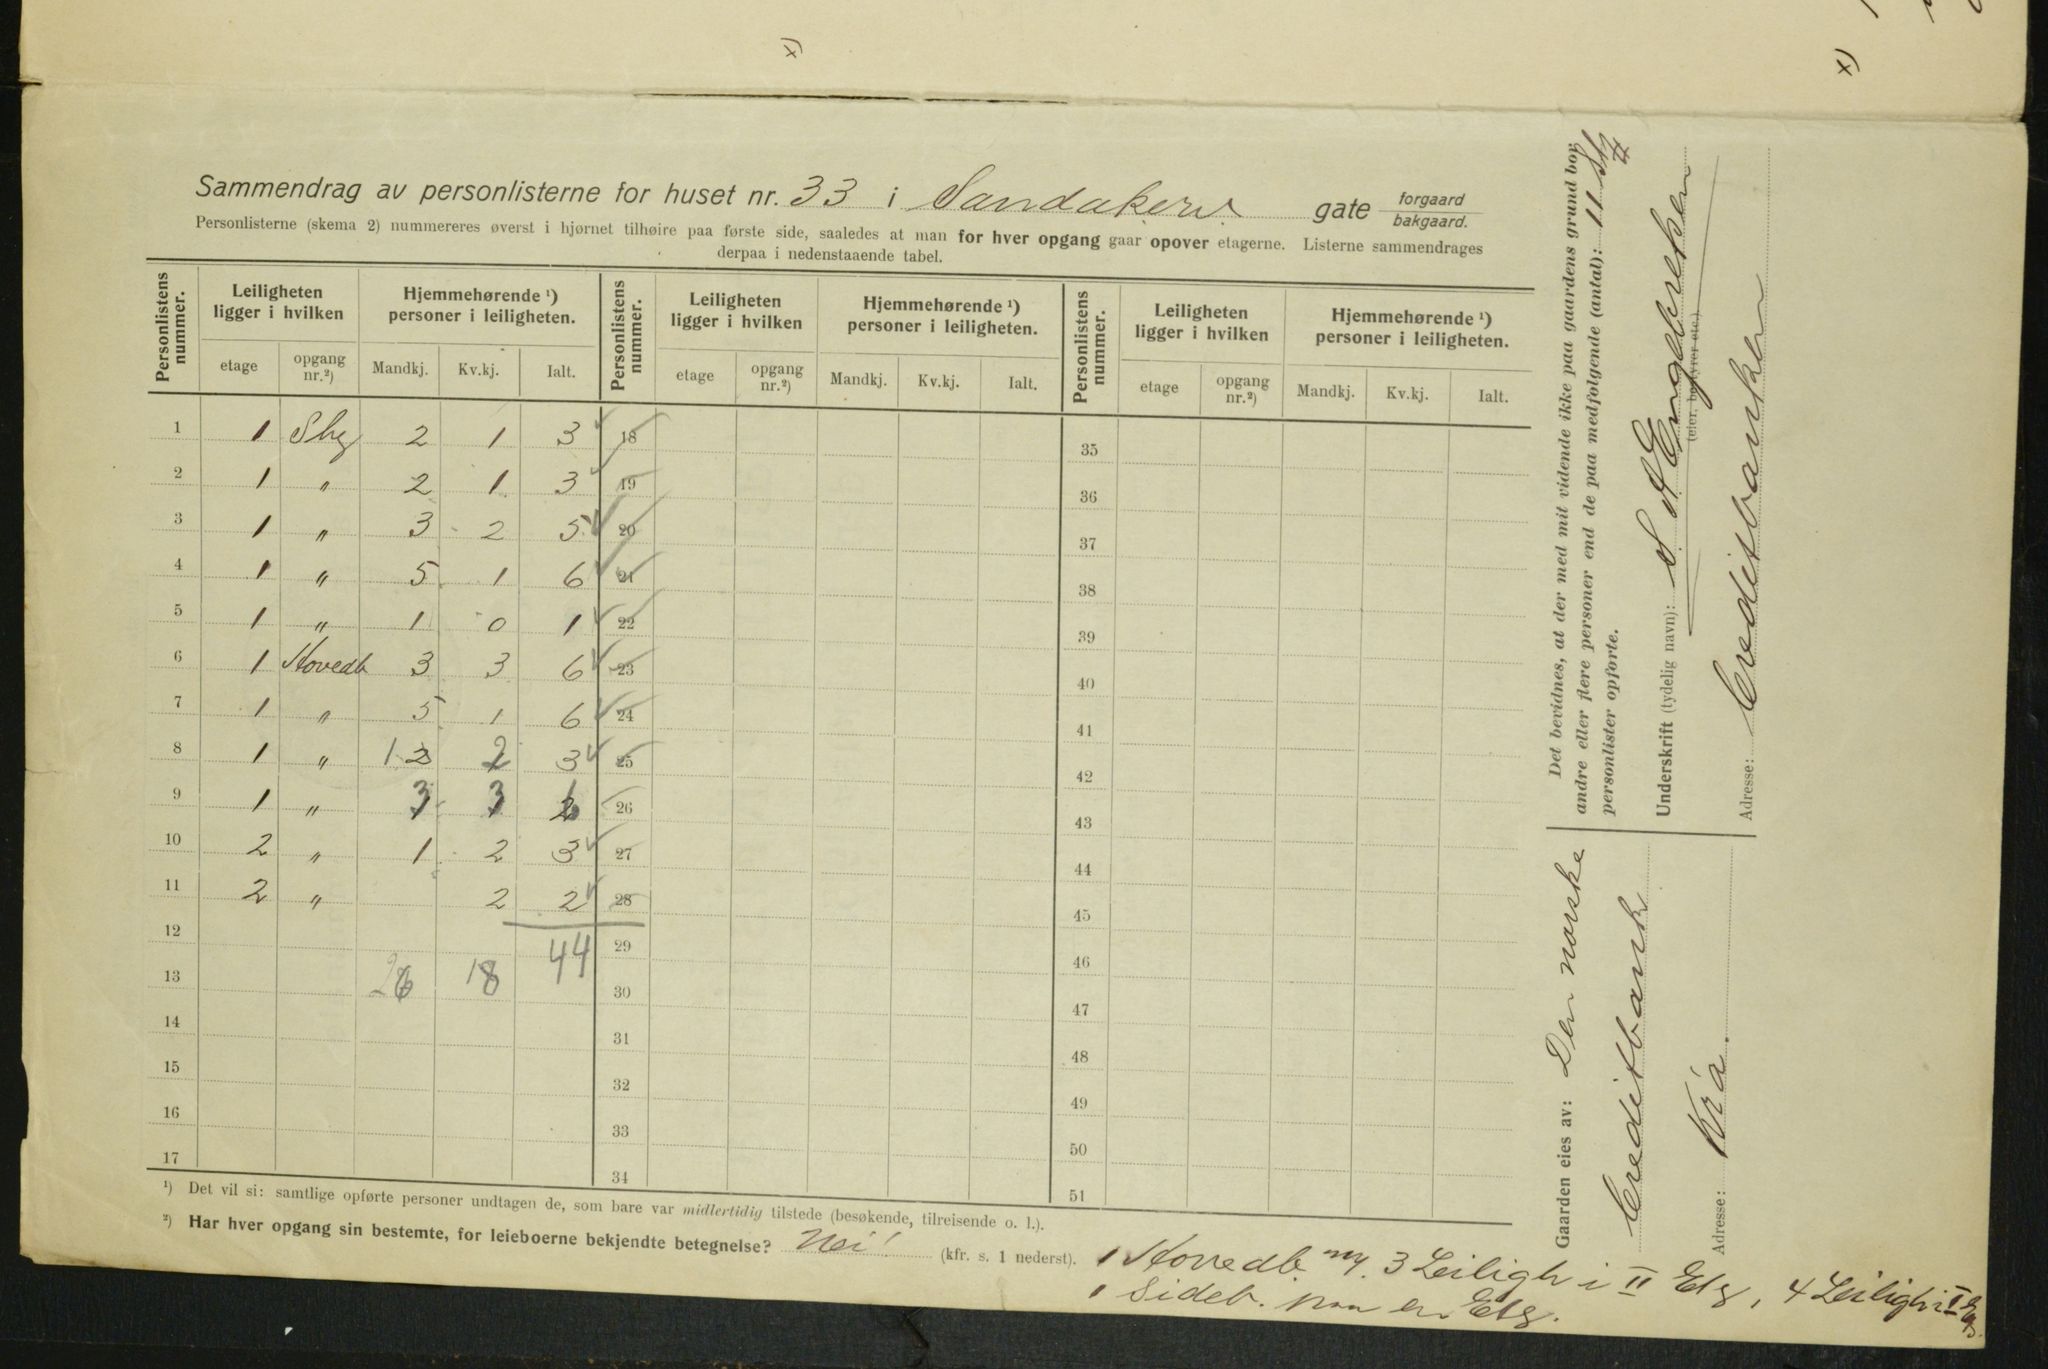 x)
x)
Sammendrag av personlisterne for huset nr. 33 i Sandakerv. gate forgaard
bakgaard.
Personlisterne (skema 2) nummereres øverst i hjørnet tilhøire paa første side, saaledes at man for hver opgang gaar opover etagerne. Listerne sammendrages
derpaa i nedenstaaende tabel.
Personlistens nummer. Leiligheten ligger i hvilken Hjemmehørende ¹) personer i leiligheten. Personlistens nummer. Leiligheten ligger i hvilken Hjemmehørende ¹) personer i leiligheten. Personlistens nummer. Leiligheten ligger i hvilken Hjemmehørende ¹) personer i leiligheten.
etage opgang nr.²) Mandkj. Kv.kj. Ialt. etage opgang nr.²) Mandkj. Kv.kj. Ialt. etage opgang nr.²) Mandkj. Kv.kj. Ialt.
1 1 2 1 3 18 35
2 1 " 2 1 3 19 36
3 1 " 3 2 5 20 37
4 1 " 5 1 6 21 38
5 1 " 1 0 1 22 39
6 1 Hovedb 3 3 6 23 40
7 1 " 5 1 6 24 41
8 1 " 1 2 3 25 42
9 1 " 3 3 6 26 43
10 2 " 1 2 3 27 44
11 2 " 2 2 28 45
12 44 29 46
13 26 18 30 47
14 31 48
15 32 49
16 33 50
17 34 51
¹) Det vil si: samtlige opførte personer undtagen de, som bare var midlertidig tilstede (besøkende, tilreisende o. l.).
²) Har hver opgang sin bestemte, for leieboerne bekjendte betegnelse? Nei! (kfr. s. 1 nederst).
1 Hovedb. 3 Leiligh i II Etg, 4 Leiligh i I Etg.
1 Sideb. paa en Etg.
Det bevidnes, at der med mit vidende ikke paa gaardens grund bor
andre eller flere personer end de paa medfølgende (antal): 11 Stk
personlister opførte.
Underskrift (tydelig navn): S A Engebretsen
(eier, bestyrer etc.)
Adresse: Creditbanken
Gaarden eies av: Den norske
Creditbank
Adresse: Kr.a.